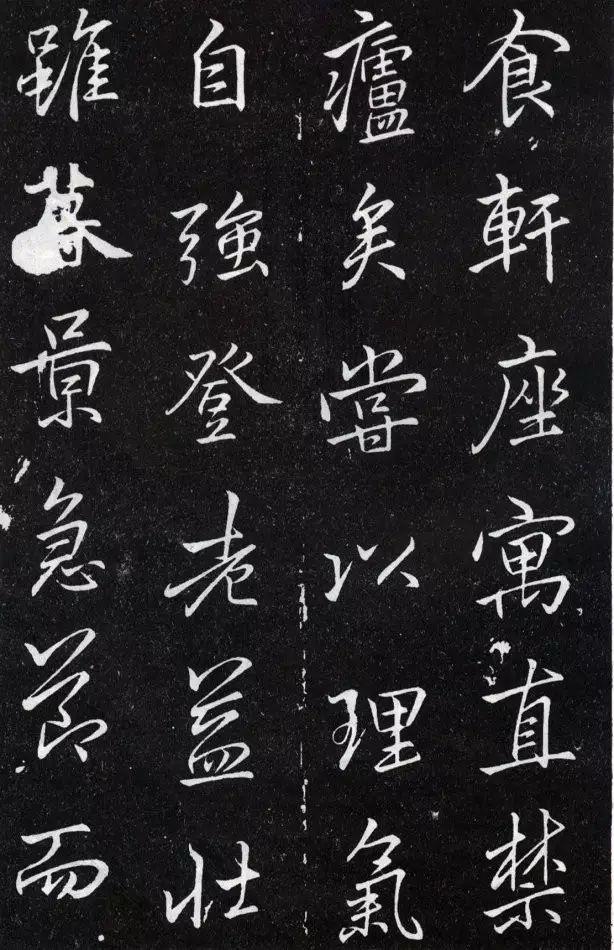 食軒座寓直禁
癘矣嘗以理氣
自強登老益壮
雖暮景急莭而